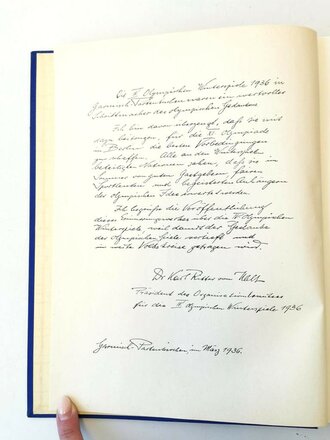 Die IV. Olympischen Winterspiele 1936 in
Garmisch-Partenkirchen waren ein wertvoller
Schrittmacher des olympischen Gedankens
Ich bin davon überzeugt, daß sie mit
dazu beitragen, für die XI. Olympiade
in Berlin die besten Vorbedingungen
zu schaffen. Alle an den Winterspielen
beteiligten Nationen sahen, daß sie im
Sommer von guten Gastgebern, fairen
Sportleuten und begeisterten Anhängern
der Olympischen Idee erwartet werden
Ich begrüße die Veröffentlichung
dieses Erinnerungswerkes über die IV. Olympischen
Winterspiele, weil damit der Gedanke
der Olympischen Spiele vertieft und
in weite Volkskreise getragen wird.
Dr. Karl Ritter von Halt
Präsident des Organisationskomitees
für die IV. Olympischen Winterspiele 1936
Garmisch-Partenkirchen, im März 1936.